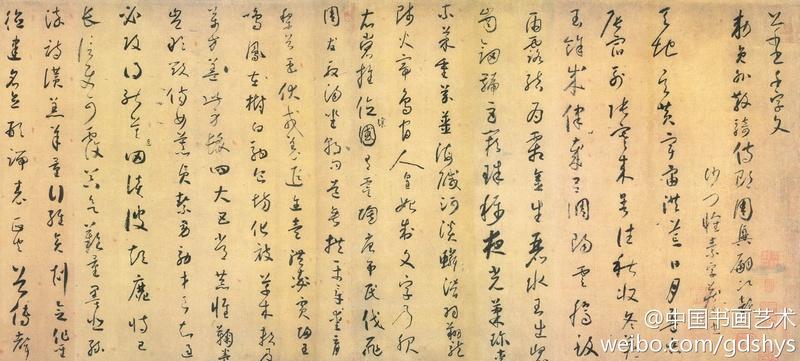 草書千字文
敕員外散騎侍郎周興嗣次韻
沙門懷素
天地玄黃宇宙洪荒日月盈昃
辰宿列張寒來暑往秋收冬
餘成律歲呂調陽雲騰致
雨露結為霜金生麗水玉出崑
崗劍號巨闕珠稱夜光菓珍李
柰菜重芥薑海鹹河淡鱗潛羽翔龍
師火帝鳥官人皇始制文字乃服
衣裳推位讓國有虞陶唐弔民伐罪
周發殷湯坐朝問道垂拱平章愛育
黎首臣伏戎羌遐邇壹體率賓歸王
鳴鳳在樹白駒食場化被草木賴及
萬方蓋此身髮四大五常恭惟鞠養
豈敢毀傷女慕貞潔男效才良知過
必改得能莫忘罔談彼短靡恃己
長信使可覆器欲難量墨悲絲
染詩讚羔羊景行維賢剋念作聖
德建名立形端表正空谷傳聲
@中国书画艺术
weibo.com/gdshys